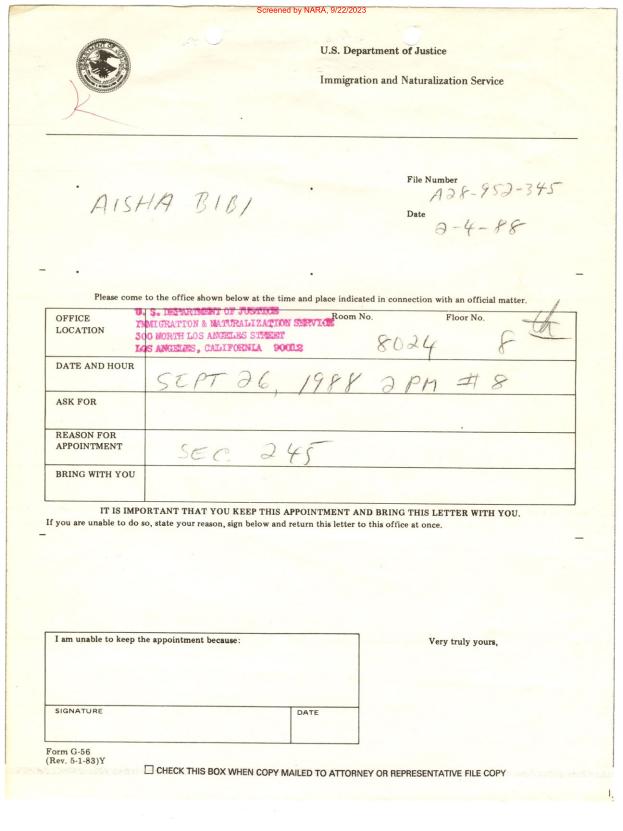 Screened by NARA, 9/22/2023
U.S. Department of Justice
Immigration and Naturalization Service
File Number
A28-952-345
AISHA BIBI
Date
2-4-88
Please come to the office shown below at the time and place indicated in connection with an official matter.
OFFICE LOCATION
U. S. DEPARTMENT OF JUSTICE
IMMIGRATION & NATURALIZATION SERVICE
300 NORTH LOS ANGELES STREET
LOS ANGELES, CALIFORNIA 90012
Room No.
8024
Floor No.
8th
DATE AND HOUR
SEPT 26, 1988 2 PM # 8
ASK FOR
REASON FOR APPOINTMENT
SEC. 245
BRING WITH YOU
IT IS IMPORTANT THAT YOU KEEP THIS APPOINTMENT AND BRING THIS LETTER WITH YOU.
If you are unable to do so, state your reason, sign below and return this letter to this office at once.
I am unable to keep the appointment because:
Very truly yours,
SIGNATURE
DATE
Form G-56
(Rev. 5-1-83)Y
CHECK THIS BOX WHEN COPY MAILED TO ATTORNEY OR REPRESENTATIVE FILE COPY